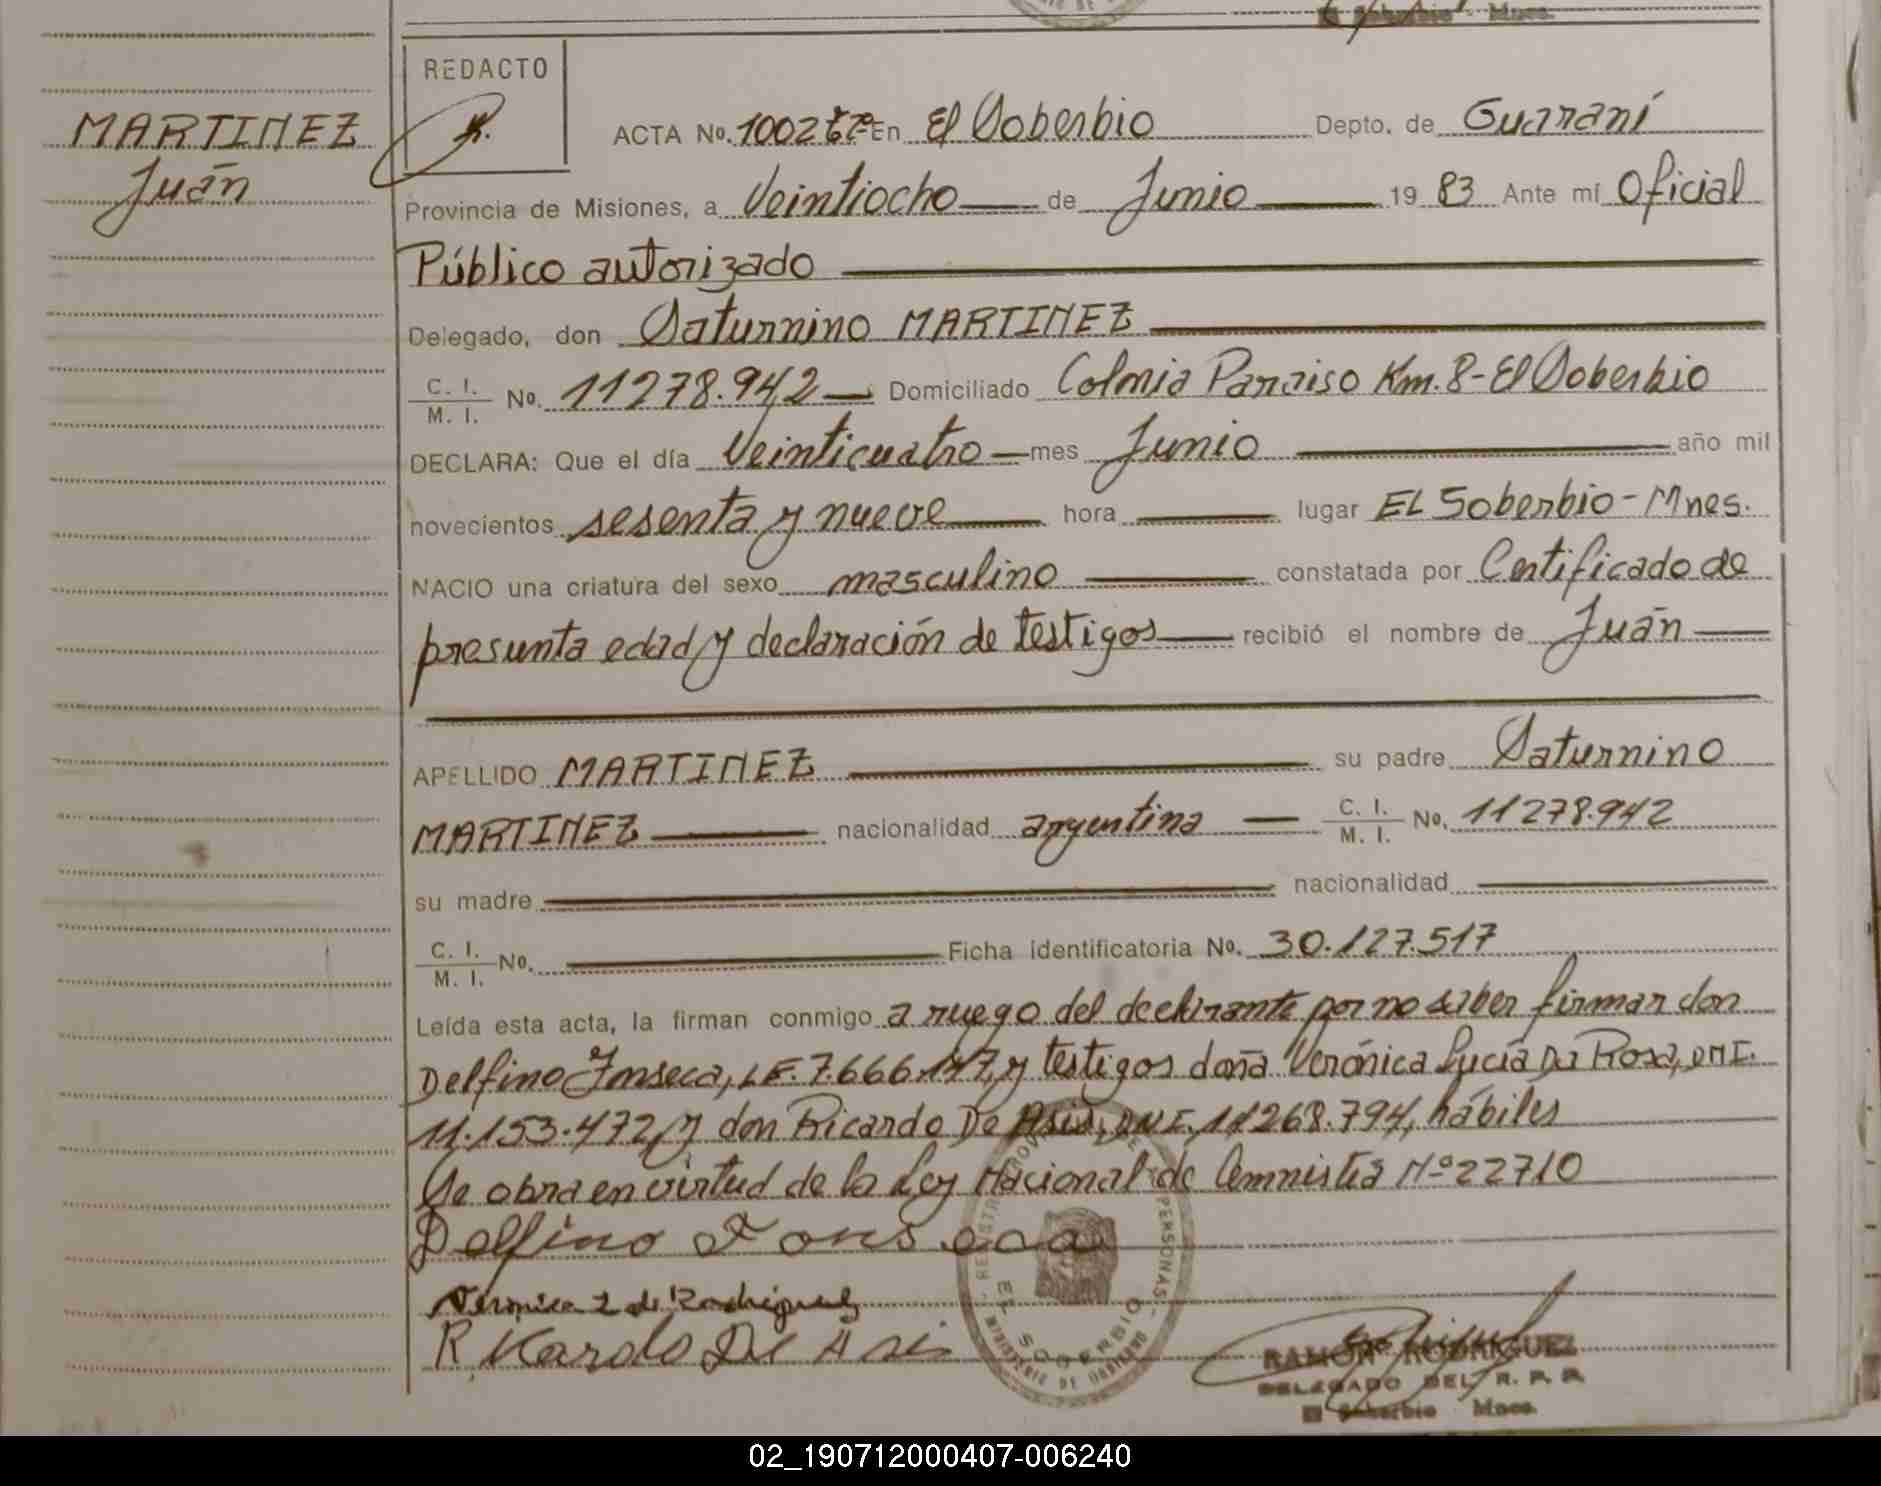 MARTINEZ
Juán
REDACTO
ACTA No. 1002 En El Soberbio Depto. de Guaraní
Provincia de Misiones, a Veintiocho de Junio 19 83 Ante mí Oficial
Público autorizado
Delegado, don Saturnino MARTINEZ
C. I. / M. I. No. 11278.942 Domiciliado Colonia Paraiso Km. 8-El Soberbio
DECLARA: Que el día Veinticuatro mes Junio año mil
novecientos sesenta y nueve hora lugar EL Soberbio-Mnes.
NACIO una criatura del sexo masculino constatada por Certificado de
presunta edad y declaración de testigos recibió el nombre de Juán
APELLIDO MARTINEZ su padre Saturnino
MARTINEZ nacionalidad argentina C. I. / M. I. No. 11278.942
su madre nacionalidad
C. I. / M. I. No. Ficha identificatoria No. 30.127.517
Leída esta acta, la firman conmigo a ruego del declarante por no saber firmar don
Delfino Fonseca, LE. 7.666.147, y testigos doña Verónica Lucía Da Rosa, DNI.
11.153.472, y don Ricardo De Asis, DNI. 11268.794, hábiles
Se obra en virtud de la Ley Nacional de Amnistia Nº 22710
Delfino Fonseca
Veronica L de Rodriguez
Rikardo De Asis
REGISTRO PROVINCIAL DE PERSONAS
EL SOBERBIO
MINISTERIO DE GOBIERNO
RAMON RODRIGUEZ
DELEGADO DEL R. P. P.
El Soberbio Mnes.
02_190712000407-006240